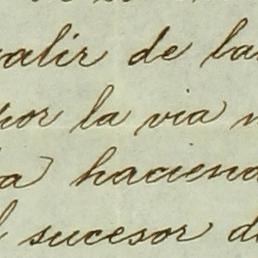 salir de la
por la via
hacienda
sucesor de